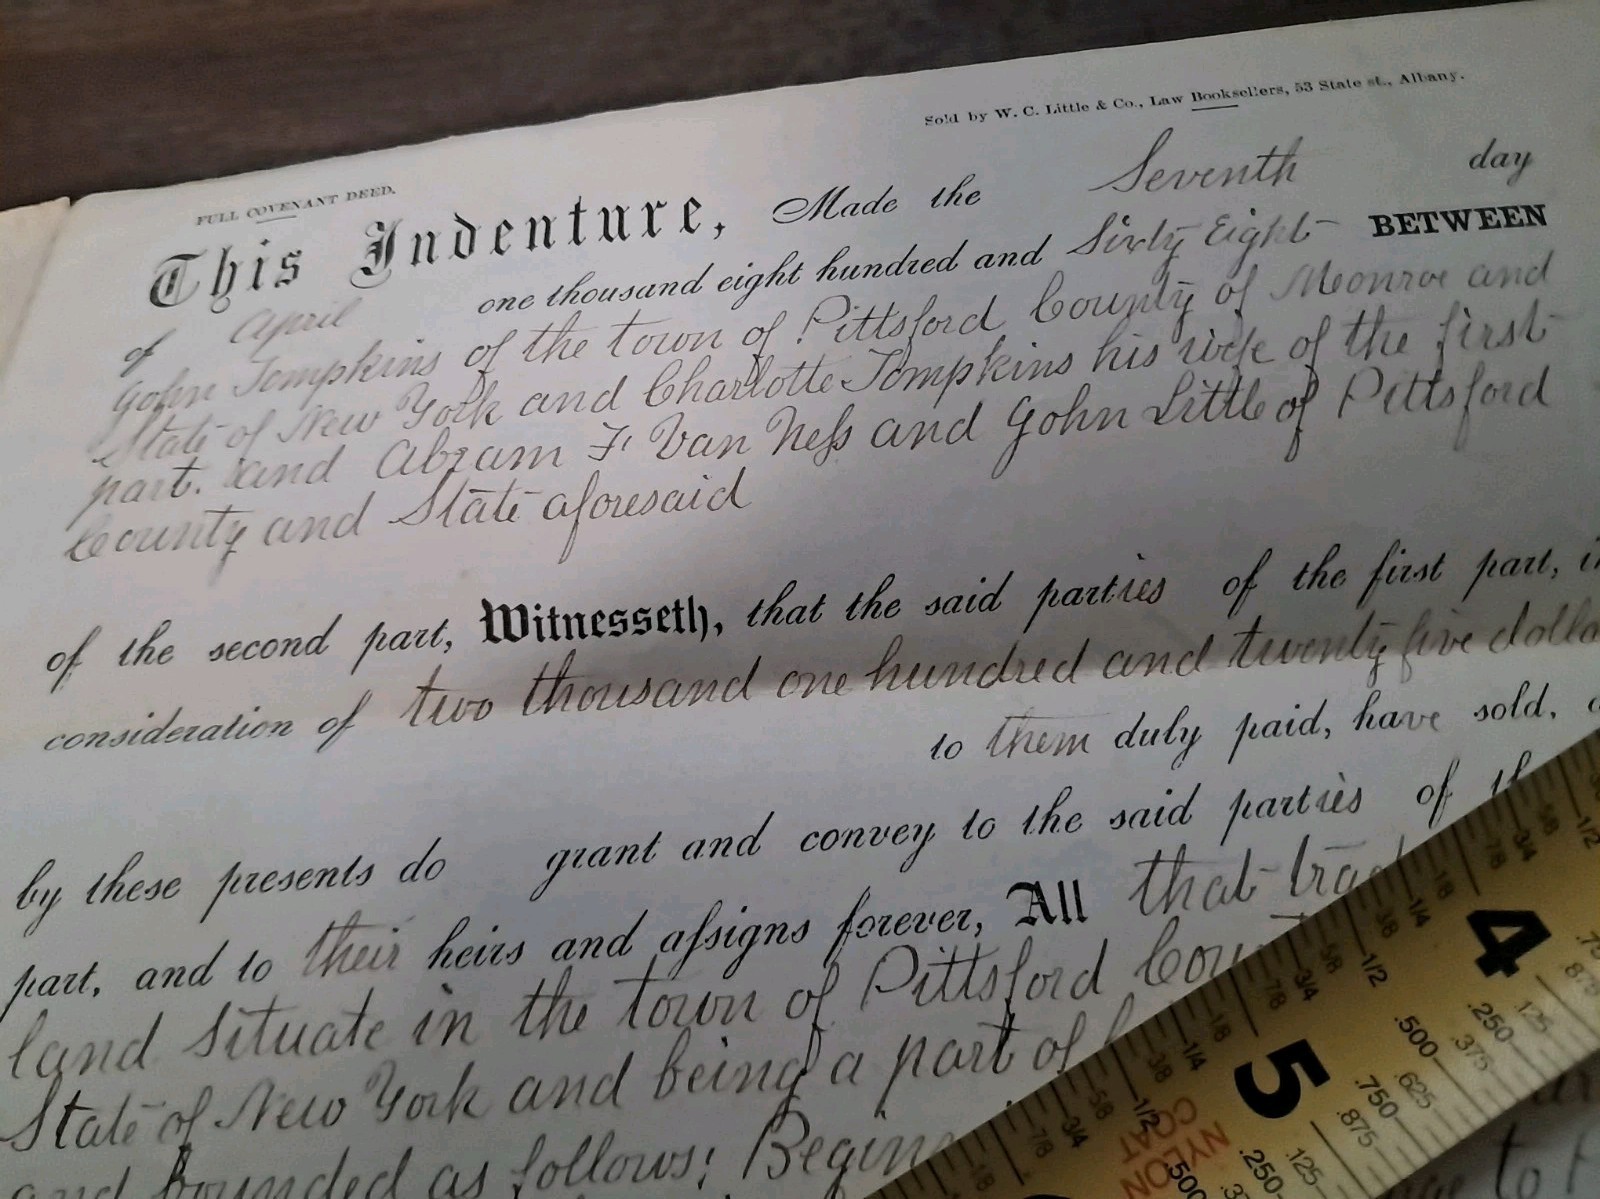 Sold by W. C. Little & Co., Law Booksellers, 53 State st., Albany.
FULL COVENANT DEED.
This Indenture, Made the Seventh day
of April one thousand eight hundred and Sixty Eight BETWEEN
John Tompkins of the town of Pittsford County of Monroe and
State of New York and Charlotte Tompkins his wife of the first
part. and Abram F. Van Ness and John Little of Pittsford
County and State aforesaid
of the second part, Witnesseth, that the said parties of the first part,
consideration of two thousand one hundred and twenty five
to them duly paid, have sold,
by these presents do grant and convey to the said parties of
part, and to their heirs and assigns forever, All that
land situate in the town of Pittsford
State of New York and being a part of
and bounded as follows:
4
5
NYLON
COAT
1/8
1/4
3/8
1/2
5/8
3/4
7/8
.125
.250
.375
.500
.625
.750
.875
.125
.250
.500
to